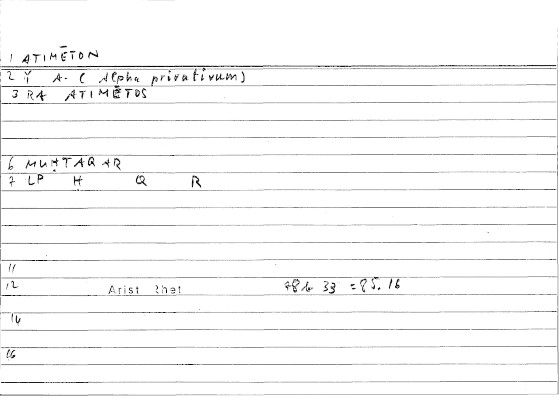 1 ATIMĒTON
2 Y A- ( Alpha privativum)
3 RA ATIMĒTOS
6 MUḤTAQAR
7 LP H Q R
11
12 Arist Rhet 78b 33 = 85.16
14
16